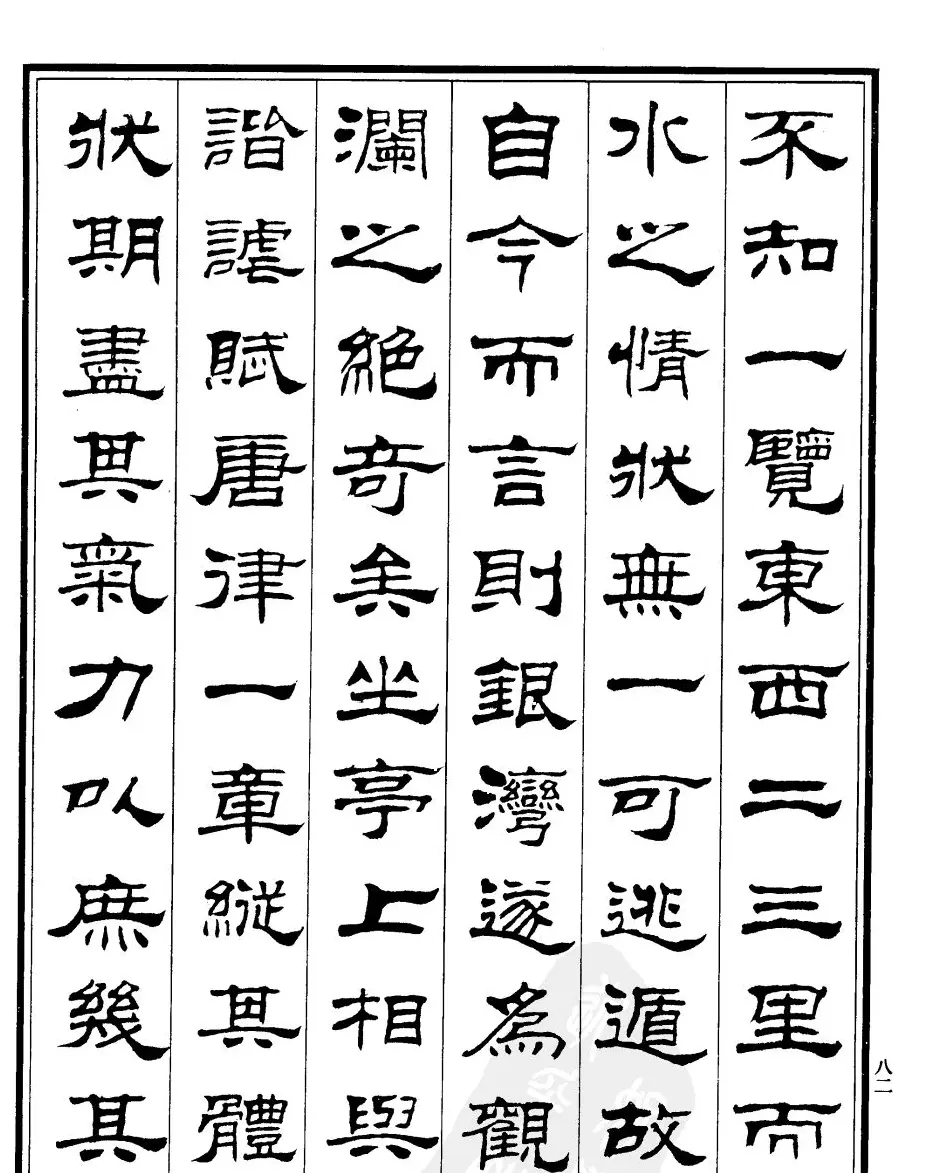 不知一覽東西二三里而
水之情狀無一可逃遁故
自今而言則銀灣遂為觀
瀾之絕奇矣坐亭上相與
諧謔賦唐律一章縱其體
狀期盡其氣力以庶幾其
八二